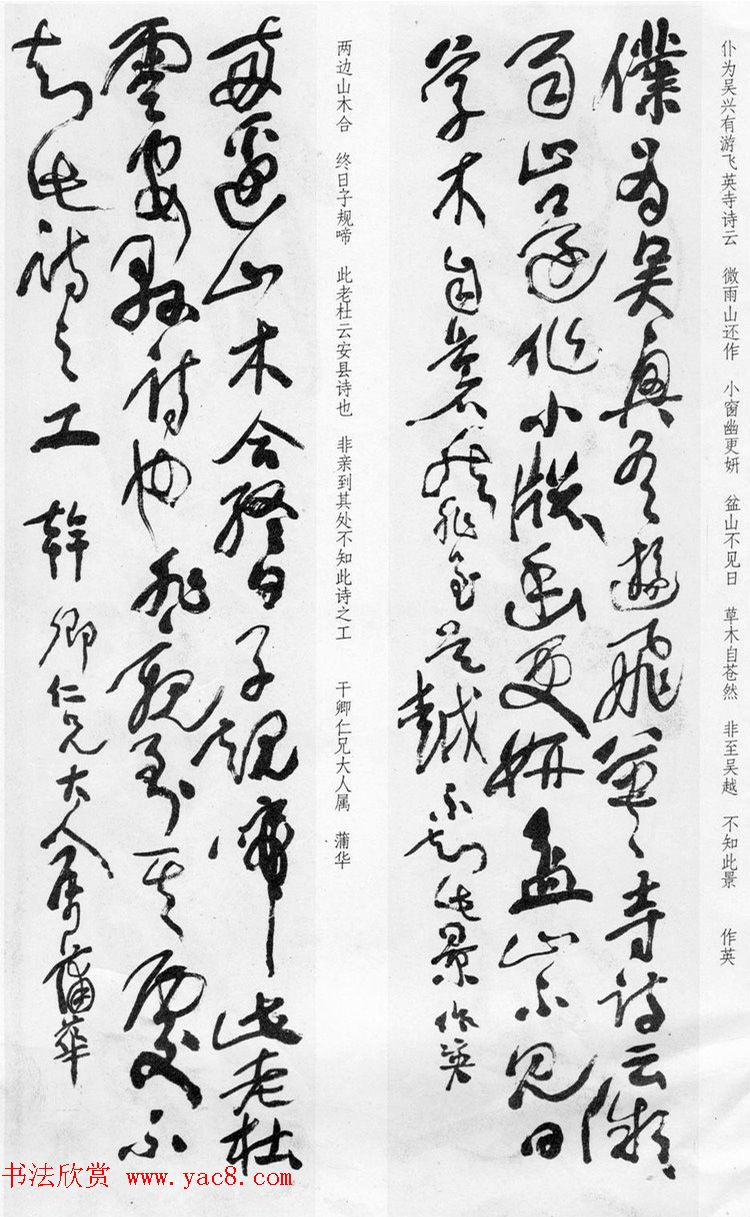 仆为吴兴有游飞英寺诗云 微雨山还作 小窗幽更妍 盆山不见日 草木自苍然 非至吴越 不知此景 作英
僕為吳興有遊飛英寺詩云微
雨山還作小牕幽更妍盆山不見日
草木自蒼然非至吳越不知此景作英
两边山木合 终日子规啼 此老杜云安县诗也 非亲到其处不知此诗之工 干卿仁兄大人属 蒲华
兩邊山木合終日子規啼此老杜
雲安縣詩也非親到其處不
知此詩之工 幹卿仁兄大人屬蒲華
书法欣赏 www.yac8.com